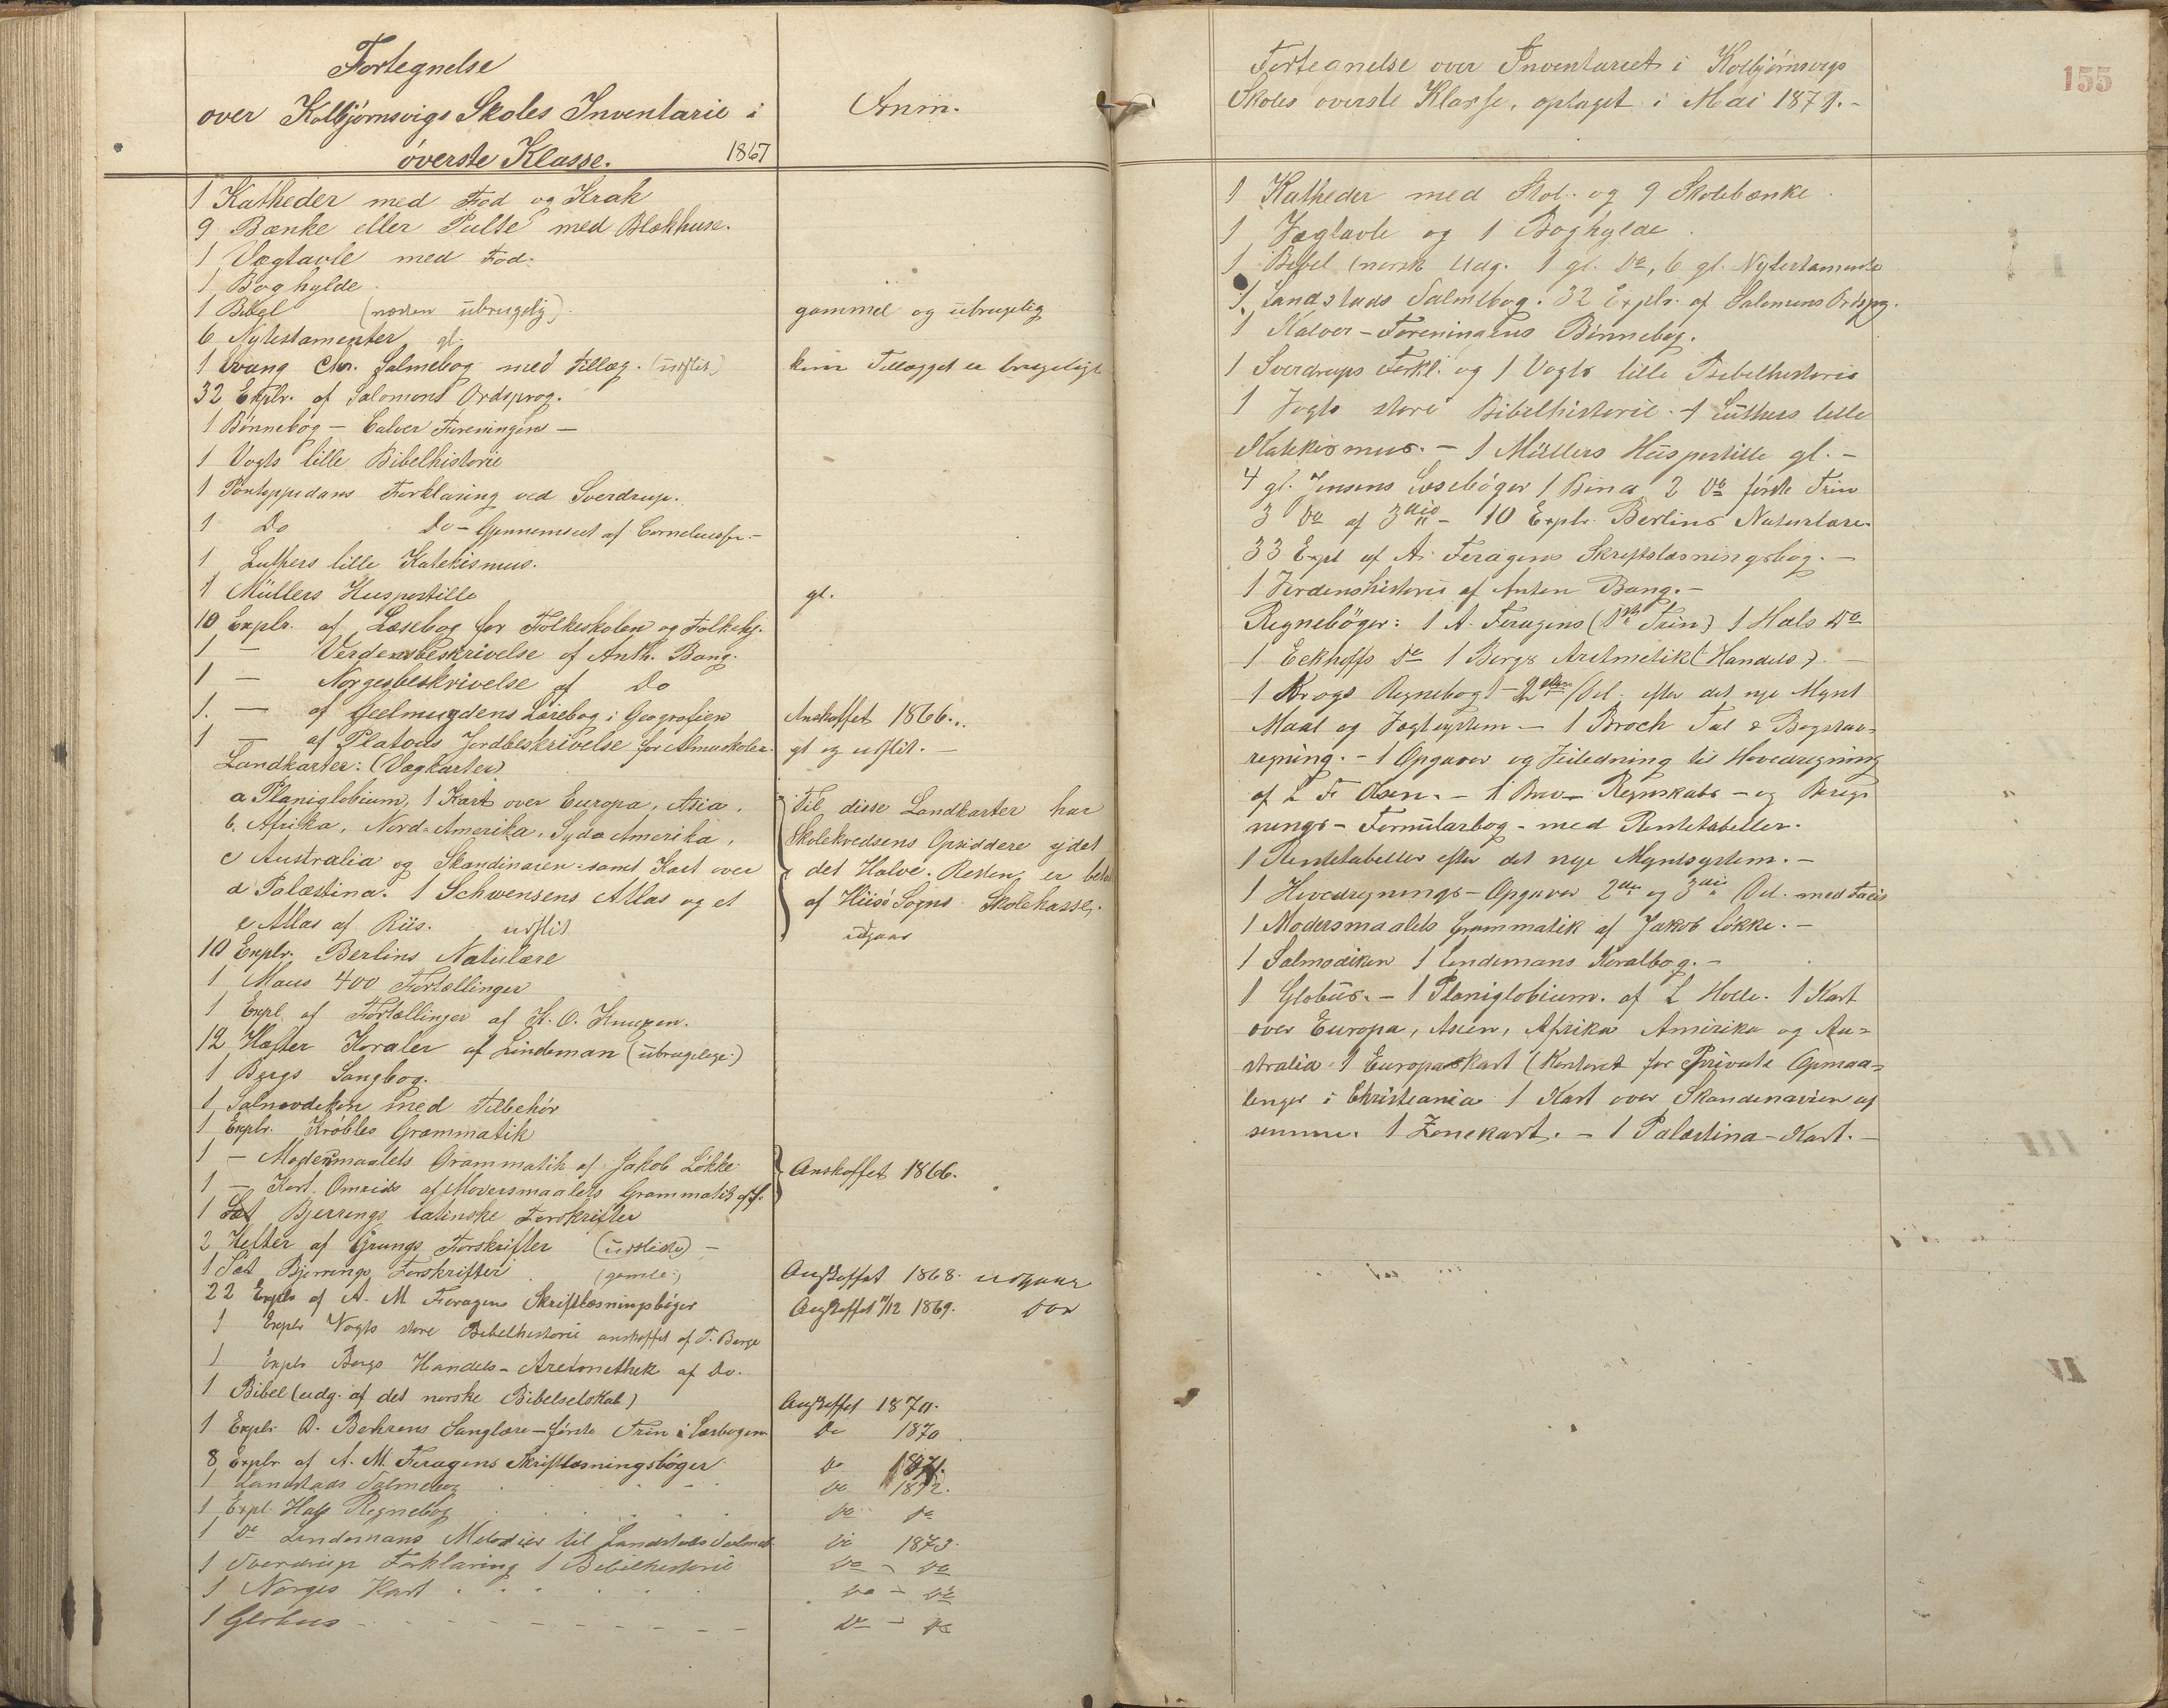 Fortegnelse
over Kolbjørnsvigs Skoles Inventarie i
øverste Klasse. 1867
Anm.
1 Katheder med Fod og Krak
9 Bænke eller Pulte med Blækhuse.
1 Vægtavle med Fod.
1 Boghylde
1 Bibel (næsten ubrugelig). gammel og ubrugelig
6 Nytestamenter gl.
1 Evang. Chr. Salmebog med Tillæg. (udslidt) kun Tillægget er brugeligt
32 Explr. af Salomons Ordsprog.
1 Bønnebog – Calver Foreningens –
1 Vogts lille Bibelhistorie
1 Pontoppidans Forklaring ved Sverdrup.
1 Do Do – Gjennemseet af
1 Luthers lille Katekismus.
1 Müllers Huspostille gl.
10 Explr. af Læsebog for Folkeskolen og Folkehj.
1 – Verdensbeskrivelse af Anth. Bang.
1 – Norgesbeskrivelse af Do
1. – af Geelmuydens Lærebog i Geografien Anskaffet 1866.
1 – af Platous Jordbeskrivelse for Almuskolen. gl og udslit. –
Landkarter: (Vægkarter)
a Planiglobium, 1 Kart over Europa, Asia,
b. Afrika, Nord-Amerika, Syd Amerika,
c Australia og Skandinavien samt Kart over
d Palæstina. 1 Schwensens Atlas og et
e Atlas af Riis. udslit
Til disse Landkarter har
Skolekredsens Opsiddere ydet
det Halve. Resten er betalt
af Hiisø Sogns Skolekasse.
udgaar
10 Explr. Berlins Naturlære
1 Maus 400 Fortællinger
1 Expl. af Fortællinger af K. O. Knutzen.
12 Hæfter Koraler af Lindeman (ubrugelige)
1 Bergs Sangbog.
1 Salmodikon med Tilbehør
1 Explr. Krøbles Grammatik
1 – Modersmaalets Grammatik af Jakob Løkke
1 – Kort Omrids af Modersmaalets Grammatik af
Anskaffet 1866.
1 Sæt Bjerrings latinske Forskrifter
2 Hefter af Grungs Forskrifter (udslidte) –
1 Sæt Bjerrings Forskrifter (gamle) Anskaffet 1868. udgaar
22 Explr af A. M. Feragens Skriftlæsningsbøger Anskaffet 11/12 1869.
1 Explr Vogts store Bibelhistorie anskaffet af T. Berge
1 Explr Bergs Handels-Aretmethek af Do.
1 Bibel (udg. af det norske Bibelselskab) Anskaffet 1870.
1 Explr D. Behrens Sanglære – første Trin i Særbogen Do 1870
8 Explr. af A. M. Feragens Skriftlæsningsbøger Do 1871.
1 Landstads Salmebog Do 1872.
1 Expl. Hals Regnebog Do Do
1 Do Lindemans Melodier til Landstads Salmeb. Do 1873.
1 Sverdrup Forklaring 1 Bibelhistorie Do – Do
1 Norges Kart Do – Do
1 Globus Do – Do
155
Fortegnelse over Inventariet i Kolbjørnsvigs
Skoles øverste Klasse, optaget i Mai 1879. –
1 Katheder med Stol og 9 Skolebænke.
1 Vægtavle og 1 Boghylde.
1 Bibel (norsk Udg. 1 gl. Do, 6 gl. Nytestamente
1 Landstads Salmebog. 32 Explr. af Salomons Ordspg.
1 Kalver-Foreningens Bønnebog.
1 Sverdrups Forkl. og 1 Vogts lille Bibelhistorie
1 Vogts store Bibelhistorie. 1 Luthers lille
Katekismus. – 1 Müllers Huspostille gl. –
4 gl. Jensens Læsebøger 1 Bind 2 Do første Trin
3 Do af 3die – 10 Explr. Berlins Naturlære
33 Expl af A. Feragens Skriftslæsningsbog. –
1 Verdenshistorie af Anton Bang. –
Regnebøger: 1 A. Feragens (1ste Trin) 1 Hals Do
1 Eckhoffs Do 1 Bergs Aretmetik (Handels). –
1 Krogs Regnebog 2den Del. efter det nye Mynt
Maal og Vægtsystem – 1 Broch Tal & Bogstav-
regning. – 1 Opgaver og Veiledning til Hovedregning
af L F Olsen. – 1 Regnskabs – og Bereg-
nings – Formularbog – med Rentetabeller.
1 Rentetabeller efter det nye Myntsystem. –
1 Hovedregnings-Opgaver 2den og 3die Del. med Facit
1 Modersmaalets Grammatik af Jakob Løkke. –
1 Salmodikon 1 Lindemans Koralbog. –
1 Globus. – 1 Planiglobium. af L Holle. 1 Kart
over Europa, Asien, Afrika Amerika og Au-
stralia 1 Europaskart (Kontoret for Private Opmaa-
linger i Christiania 1 Kart over Skandenavien af
samme. 1 Zonekart. – 1 Palæstina-Kart. –